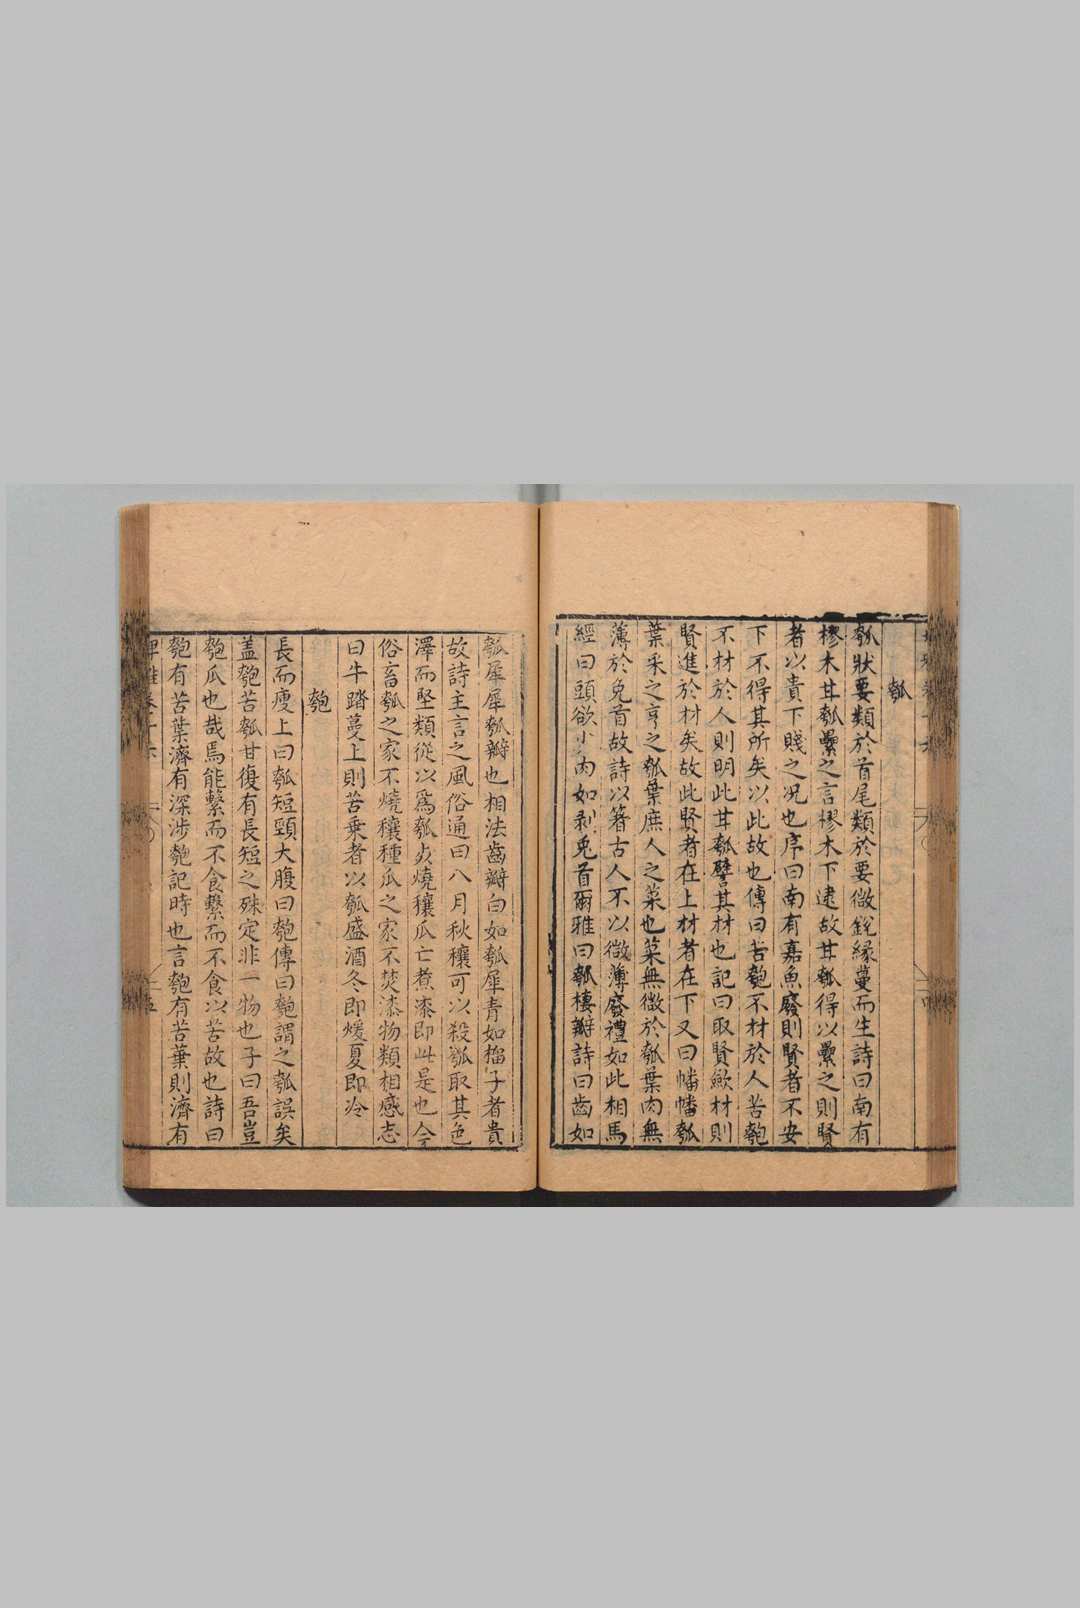 瓠
瓠狀要類於首尾類於要微銳緣蔓而生詩曰南有
樛木甘瓠纍之言樛木下逮故甘瓠得以纍之則賢
者以貴下賤之况也序曰南有嘉魚廢則賢者不安
下不得其所矣以此故也傳曰苦匏不材於人苦匏
不材於人則明此甘瓠譬其材也記曰取賢歛材則
賢進於材矣故此賢者在上材者在下又曰幡幡瓠
葉采之亨之瓠葉庶人之菜也菜無微於瓠葉肉無
薄於兔首故詩以著古人不以微薄廢禮如此相馬
經曰頭欲少肉如剥兔首爾雅曰瓠棲瓣詩曰齒如
瓠犀犀瓠瓣也相法齒瓣白如瓠犀青如榴子者貴
故詩主言之風俗通曰八月秋穰可以殺瓠取其色
澤而堅類從以為瓠歺燒穰瓜亡煮漆即此是也今
俗畜瓠之家不燒穰種瓜之家不焚漆物類相感志
曰牛踏蔓上則苦乗者以瓠盛酒冬即煖夏即冷
匏
長而瘦上曰瓠短頸大腹曰匏傳曰匏謂之瓠誤矣
盖匏苦瓠甘復有長短之殊定非一物也子曰吾豈
匏瓜也哉焉能繫而不食繫而不食以苦故也詩曰
匏有苦葉濟有深涉匏記時也言匏有苦葉則濟有
埤雅卷十六